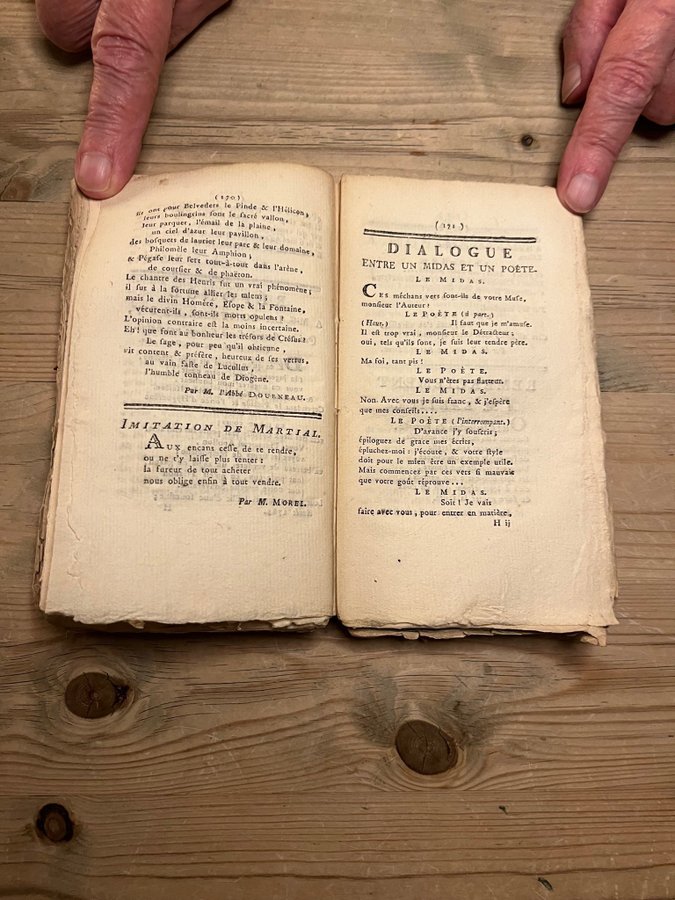 (170)
Ils ont pour Belveders le Pinde & l'Hélicon;
leurs boulingrins sont le sacré vallon,
leur parquet, l'émail de la plaine,
un ciel d'azur leur pavillon,
des bosquets de laurier leur parc & leur domaine,
Philomèle leur Amphion;
& Pégase leur sert tout-à-tout dans l'arène,
de coursier & de phaëron.
Le chantre des Heuris fut un vrai phénomène;
il sut à la fortune allier les talens;
mais le divin Homère, Esope & la Fontaine,
vécurent-ils, sont-ils morts opulens?
L'opinion contraire est la moins incertaine.
Eh! que font au bonheur les trésors de Crésus?
Le sage, pour peu qu'il obtienne,
vit content & préfère, heureux de ses vertus,
au vain faste de Lucullus,
l'humble tonneau de Diogène.
Par M. l'Abbé DOURNEAU.
IMITATION DE MARTIAL.
AUX encans cesse de te rendre,
ou ne t'y laisse plus tenter:
la fureur de tout acheter
nous oblige enfin à tout vendre.
Par M. MOREL.
H
(171)
DIALOGUE
ENTRE UN MIDAS ET UN POËTE.
LE MIDAS.
CES méchans vers sont-ils de votre Muse,
monsieur l'Auteur?
LE POËTE (à part.)
(Haut.) Il faut que je m'amuse.
Il est trop vrai, monsieur le Détracteur;
oui, tels qu'ils sont, je suis leur tendre père.
LE MIDAS.
Ma foi, tant pis!
LE POËTE.
Vous n'êtes pas flatteur.
LE MIDAS.
Non. Avec vous je suis franc, & j'espère
que mes conseils....
LE POËTE (l'interrompant.)
D'avance j'y souscris;
épiloguez de grace mes écrits,
épluchez-moi: j'écoute, & votre style
doit pour le mien être un exemple utile.
Mais commencez par ces vers si mauvais
que votre goût réprouve...
LE MIDAS.
Soit! Je vais
faire avec vous, pour entrer en matière,
H ij